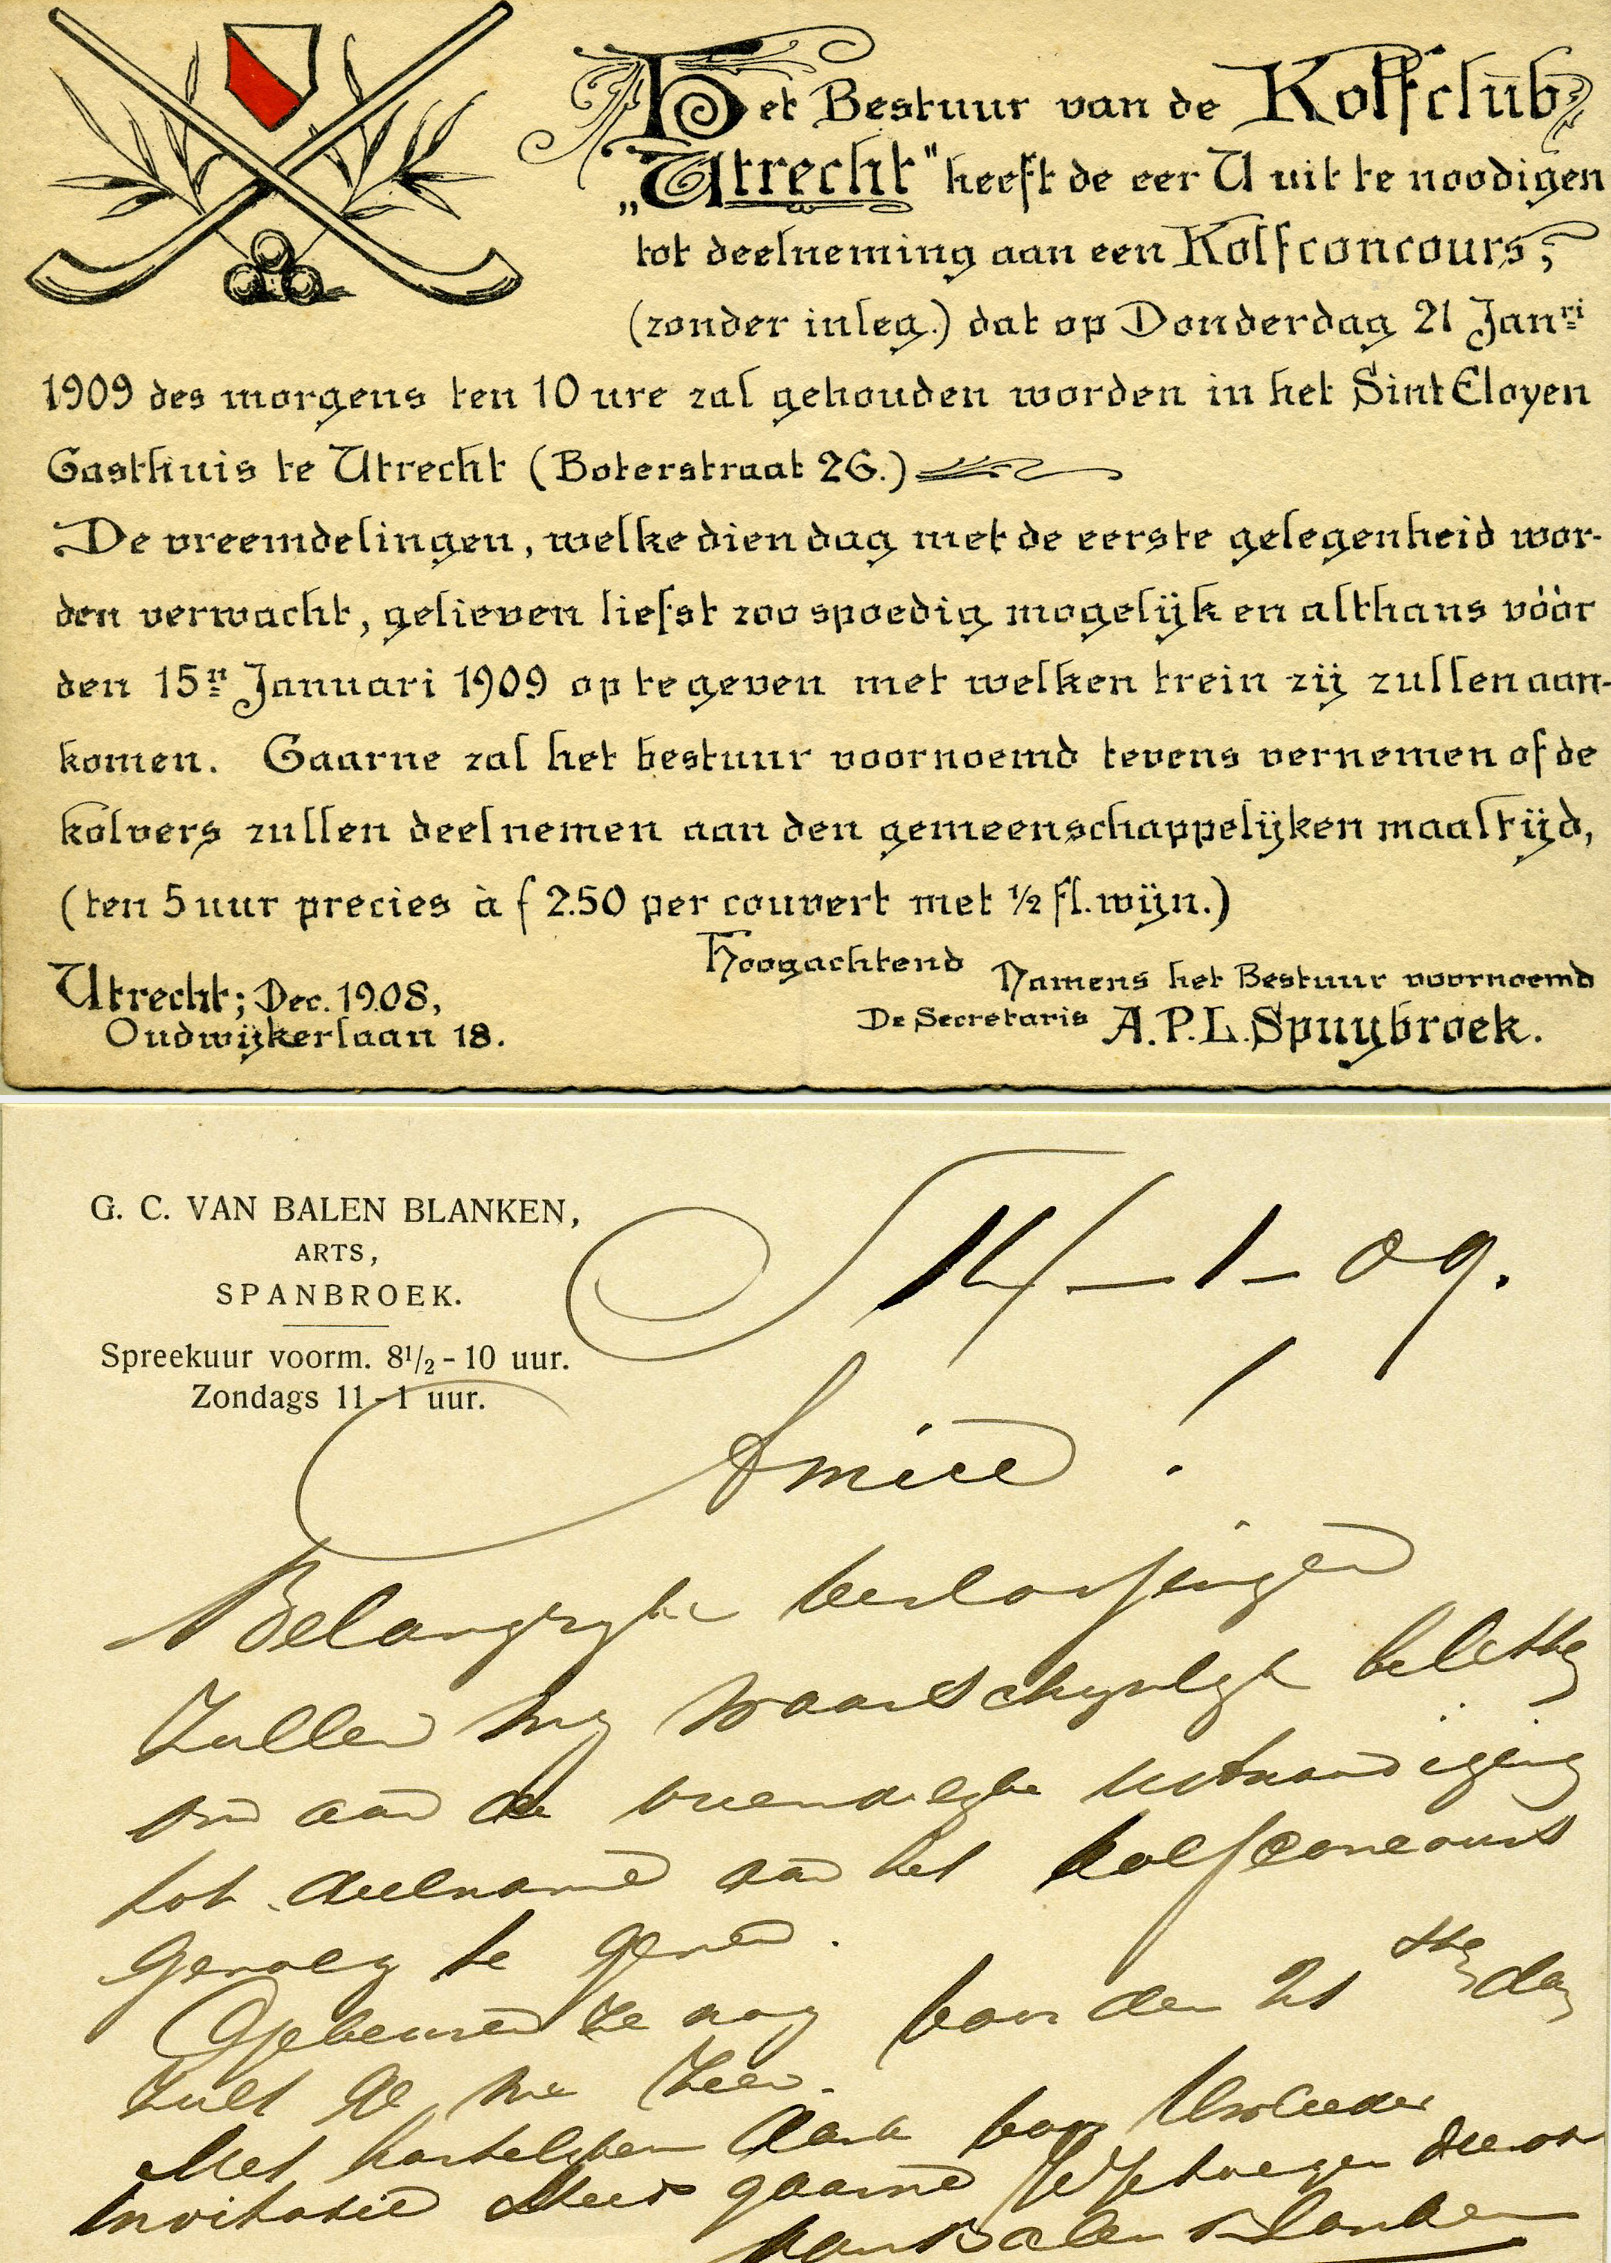 Het Bestuur van de Kolfclub
„Utrecht" heeft de eer U uit te noodigen
tot deelneming aan een Kolfconcours,
(zonder inleg.) dat op Donderdag 21 Janri
1909 des morgens ten 10 ure zal gehouden worden in het Sint Eloyen
Gasthuis te Utrecht (Boterstraat 26.)
De vreemdelingen, welke dien dag met de eerste gelegenheid wor-
den verwacht, gelieven liefst zoo spoedig mogelijk en althans vóór
den 15n Januari 1909 op te geven met welken trein zij zullen aan-
komen. Gaarne zal het bestuur voornoemd tevens vernemen of de
kolvers zullen deelnemen aan den gemeenschappelijken maaltijd,
(ten 5 uur precies à f 2.50 per couvert met ½ fl. wijn.)
Hoogachtend
Namens het Bestuur voornoemd
Utrecht; Dec. 1908,
De Secretaris A.P.L. Spuybroek.
Oudwijkerlaan 18.
G. C. VAN BALEN BLANKEN,
ARTS,
SPANBROEK.
Spreekuur voorm. 8½ - 10 uur.
Zondags 11 - 1 uur.
14-1-09.
Amice!
Belangrijke verlossingen
zullen mij waarschijnlijk beletten
om aan de vriendelijke uitnoodiging
tot deelname aan het kolfconcours
gevolg te geven.
Gebeuren ze nog voor den 21sten dan
zult ge me zien.
Met hartelijken dank voor
invitatie steeds gaarne
van Balen Blanken